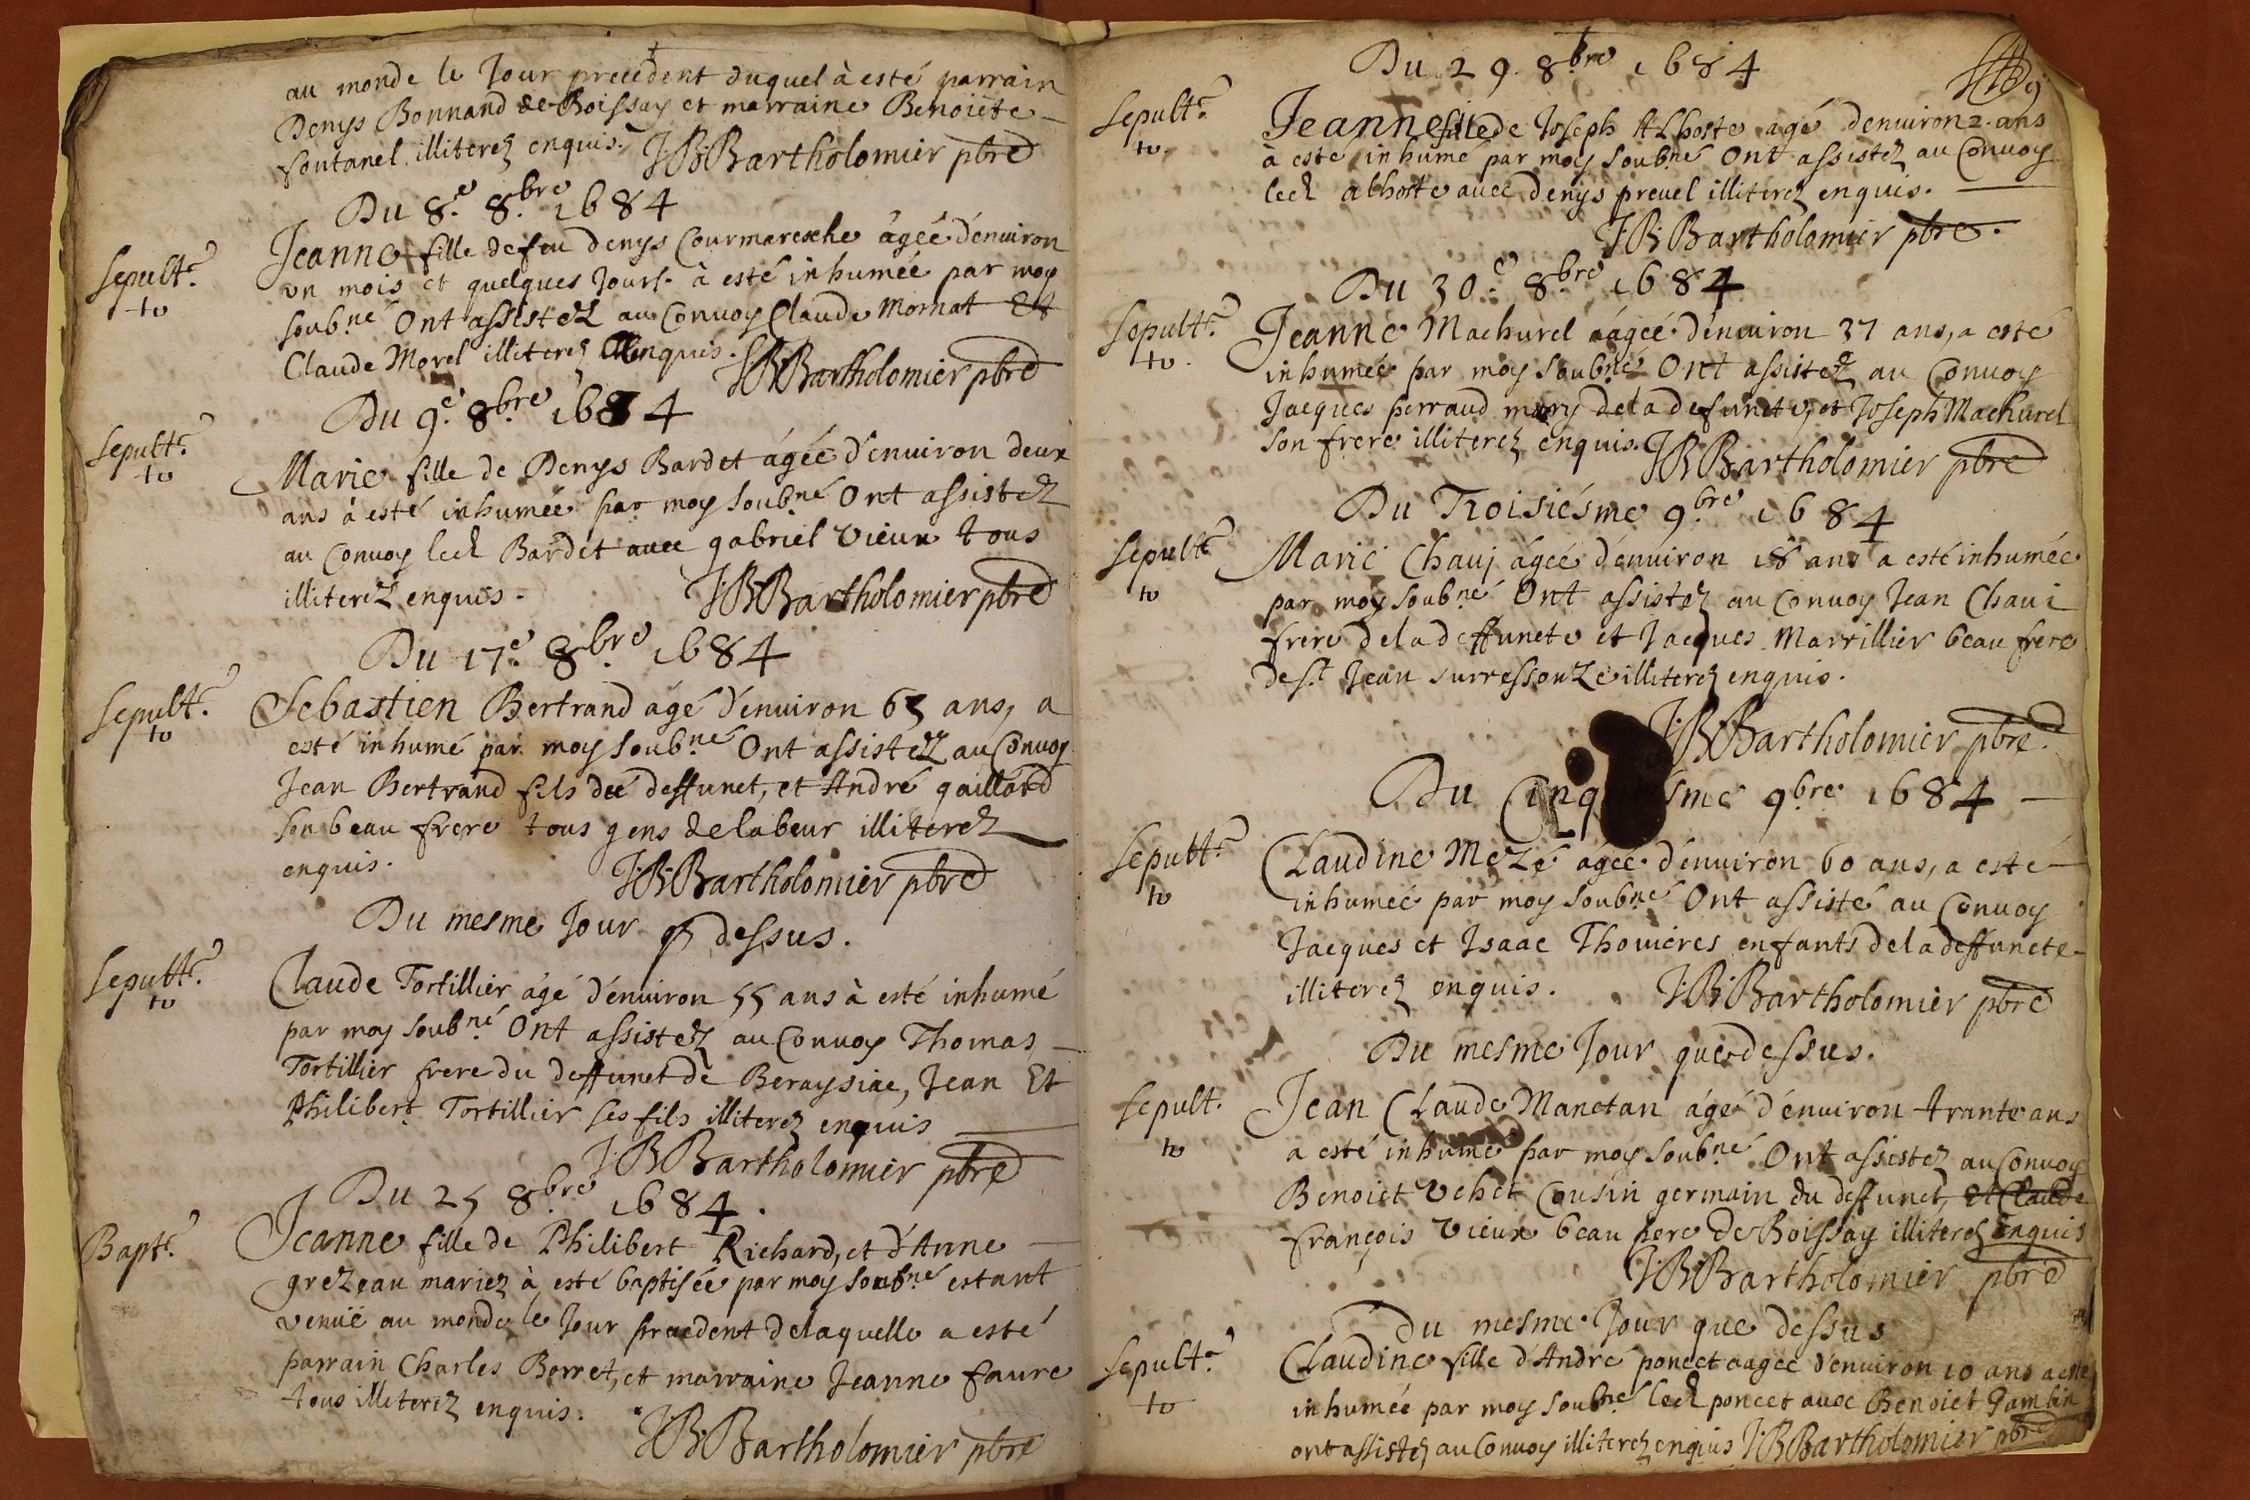 au monde le Jour precedent duquel à esté parrain
Denys Bonnand de Boissay et marraine Benoiete
fontanel illiterez enquis. JBBartholomier pbre
Du 8e 8bre 1684
Sepultre
Jeanne fille de feu denys Courmaresche âgée d'enuiron
vn mois et quelques Jours à esté inhumée par moy
soubné Ont assistez au Conuoy Claude Mornat Et
Claude Morel illiterez enquis. JBBartholomier pbre
Du 9e 8bre 1684
Sepultre
Marie fille de Denys Bardet ágée d'enuiron deux
ans à esté inhumée par moy soubné Ont assistez
au Conuoy led Bardet auec gabriel Vieux tous
illiterez enquis. JBBartholomier pbre
Du 17e 8bre 1684
Sepultre
Sebastien Bertrand agé d'enuiron 65 ans, a
esté inhumé par moy soubné Ont assistez au Conuoy
Jean Bertrand fils du deffunct, et André gaillard
son beau frere tous gens de labeur illiterez
enquis. JBBartholomier pbre
Du mesme Jour q dessus.
Sepultre
Claude Tortillier âgé d'enuiron 55 ans à esté inhumé
par moy soubné Ont assistez au Conuoy Thomas
Tortillier frere du deffunct de Beraysiac, Jean Et
Philibert Tortillier ses fils illiterez enquis
JBBartholomier pbre
Du 25 8bre 1684.
Baptê
Jeanne fille de Philibert Richard, et d'Anne
grezeau mariez à esté baptisée par moy soubné estant
venuë au monde le Jour precedent delaquelle a esté
parrain Charles Berret, et marraine Jeanne faure
tous illiterez enquis. JBBartholomier pbre
Du 29. 8bre 1684
Sepultre
Jeanne fille de Joseph ALhoste agé d'enuiron 2 ans
à esté inhumé par moy soubné Ont assistez au Conuoy
led alhoste auec denys preuel illiterez enquis.
JBBartholomier pbre.
Du 30e 8bre 1684
Sepultre
Jeanne Machurel aágée d'enuiron 37 ans, a esté
inhumée par moy soubné Ont assistez au Conuoy
Jacques perraud mary dela defuncte, et Joseph Machurel
son frere illiterez enquis. JBBartholomier pbre
Du Troisiésme 9bre 1684
Sepultre
Marie Chauj ágée d'enuiron 18 ans a esté inhumée
par moy soubné Ont assistez au Conuoy Jean Chaui
frere dela deffuncte et Jacques Marrillier beau frere
de St Jean surressouze illiterez enquis.
JBBartholomier pbre.
Du Cinq sme 9bre 1684
Sepultre
CLaudine Mezé ágée d'enuiron 60 ans, a esté
inhumée par moy soubné Ont assisté au Conuoy
Jacques et Isaac Thouieres enfants dela deffuncte
illiterez enquis. JBBartholomier pbre
Du mesme Jour que dessus.
Sepult.
Jean CLaude Manctan âgé d'enuiron trante ans
a esté inhumé par moy soubné Ont assistez au Conuoy
Benoict Vehet Cousin germain du deffunct, et Claude
françois Vieux beau pere de Boissay illiterez enquis
JBBartholomier pbre
Du mesme Jour que dessus
Sepultre
CLaudine fille d'André poncet aagée d'enuiron 10 ans a esté
inhumée par moy soubné led poncet auec Benoict Jambin
ont assistez au Conuoy illiterez enquis JBBartholomier pbre